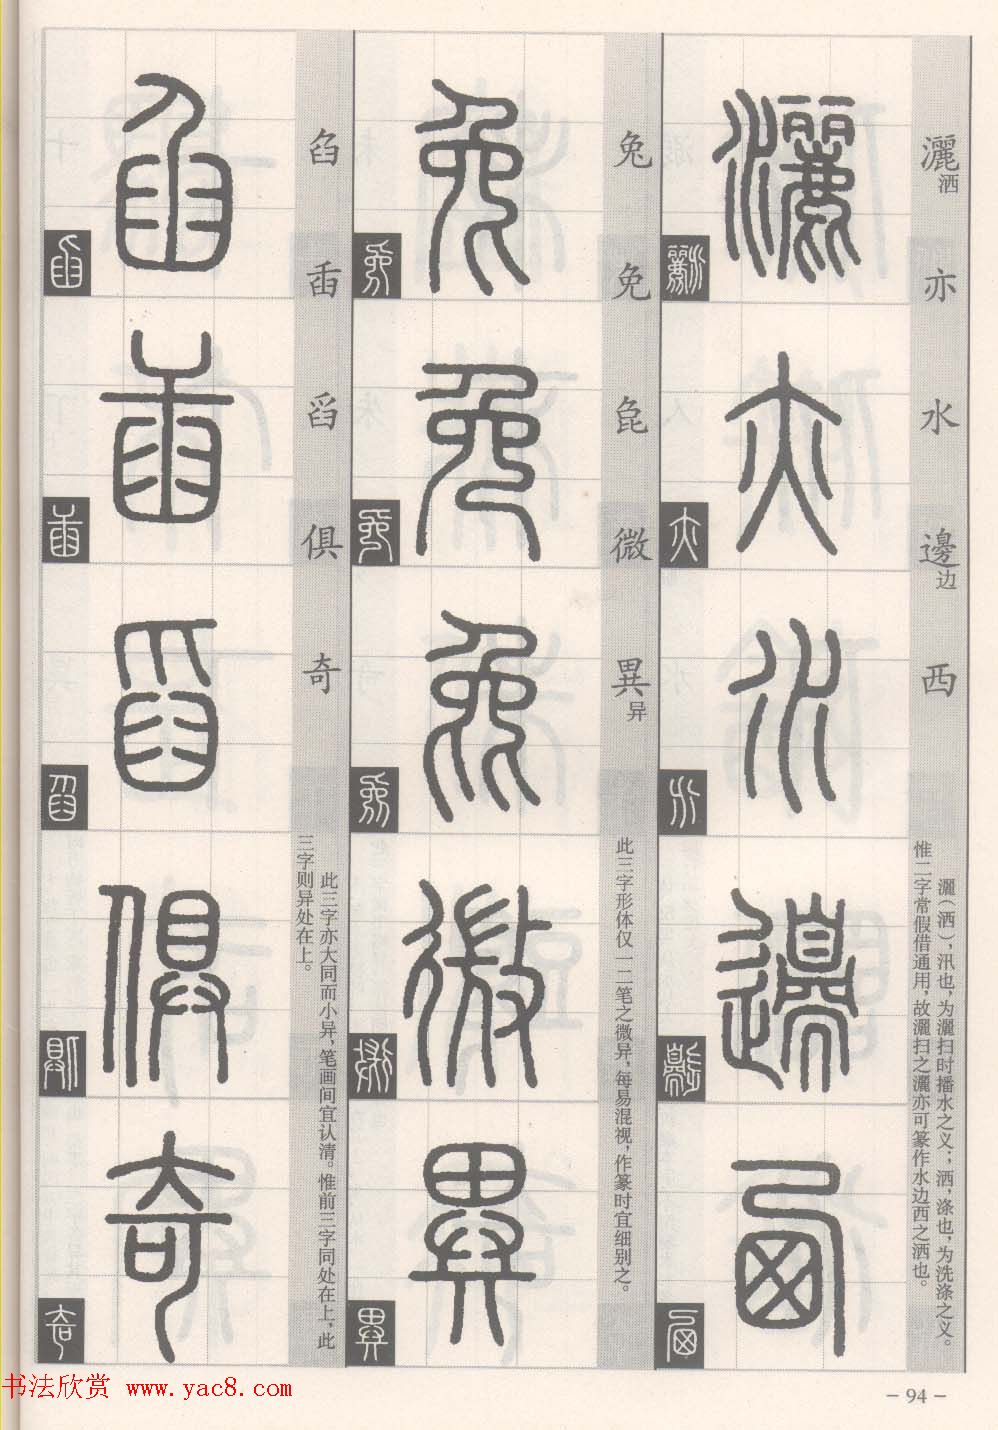 灑洒
亦
水
邊边
西
灑（洒），汛也，为灑扫时播水之义；洒，涤也，为洗涤之义。
惟二字常假借通用，故灑扫之灑亦可篆作水边西之洒也。
兔
免
㲋
微
異异
此三字形体仅一二笔之微异，每易混视，作篆时宜细别之。
臽
臿
舀
俱
奇
此三字亦大同而小异，笔画间宜认清。惟前三字同处在上，此
三字则异处在上。
书法欣赏 www.yac8.com
－94－